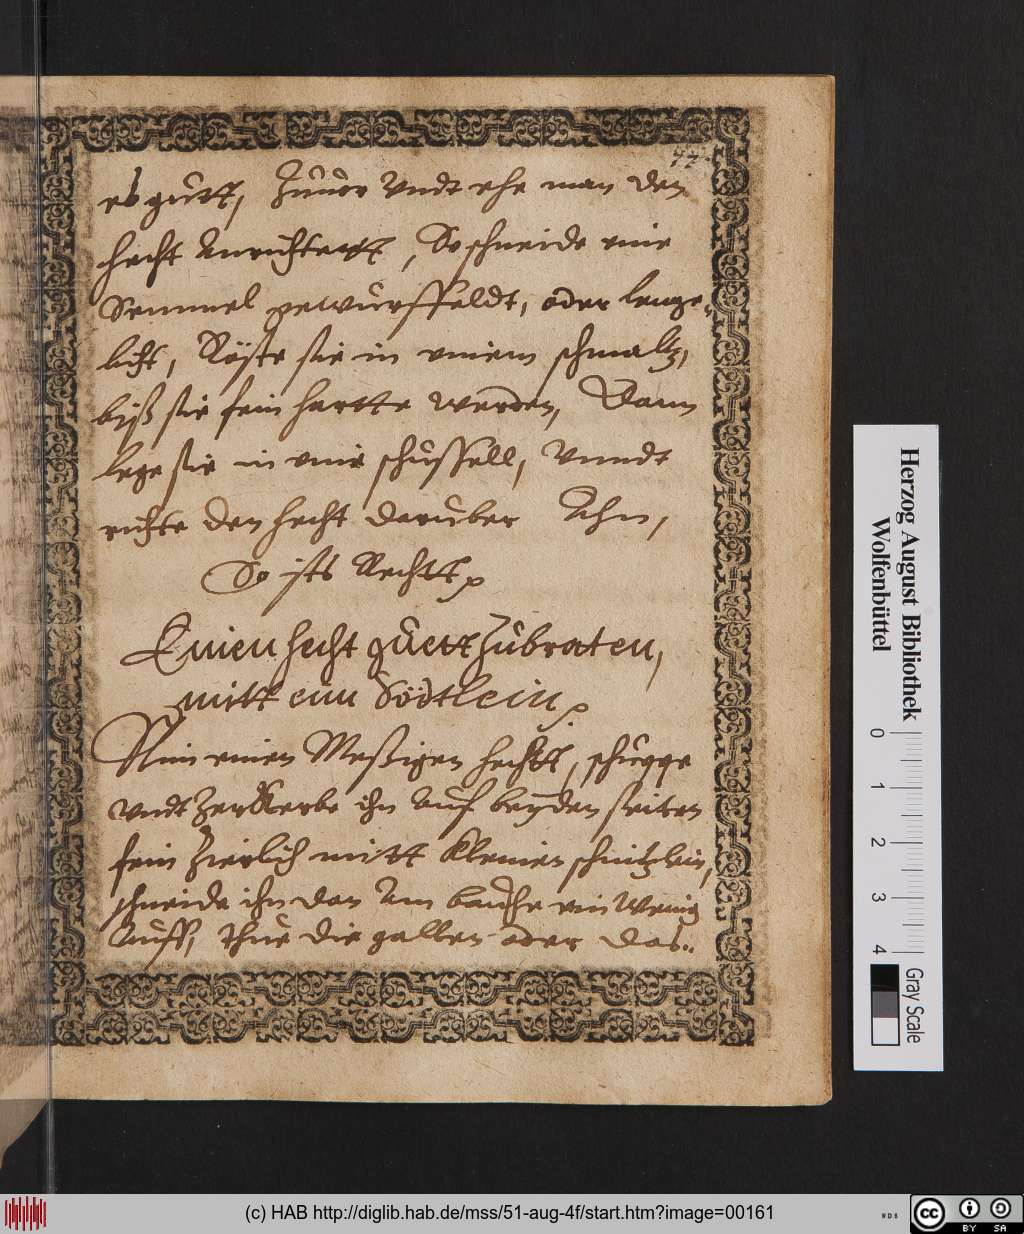 77.
es gutt, Zuuor Vndt ehe man den
hecht Anrichtett, So schneide eine
Semmel gewürffeldt, oder lenge-
licht, Röste sie in einem schmaltz,
biß sie fein hartte werden, Dann
lege sie in eine schüssell, Vnndt
richte den hecht darüber Ahn,
So ists Rechtt
Einen hecht guett Zubraten,
mitt eim Södtlein
Nim einen Meßigen hechtt, schuppe
vndt Zerkerbe ihn Auf beyden seiten
fein Zierlich mitt kleinen schnitzlein,
schneide ihn den Am bauche ein Wenig
Auff, thue die gallen oder das..
Herzog August Bibliothek
Wolfenbüttel
0 1 2 3 4
Gray Scale
(c) HAB http://diglib.hab.de/mss/51-aug-4f/start.htm?image=00161
WDB
cc BY SA